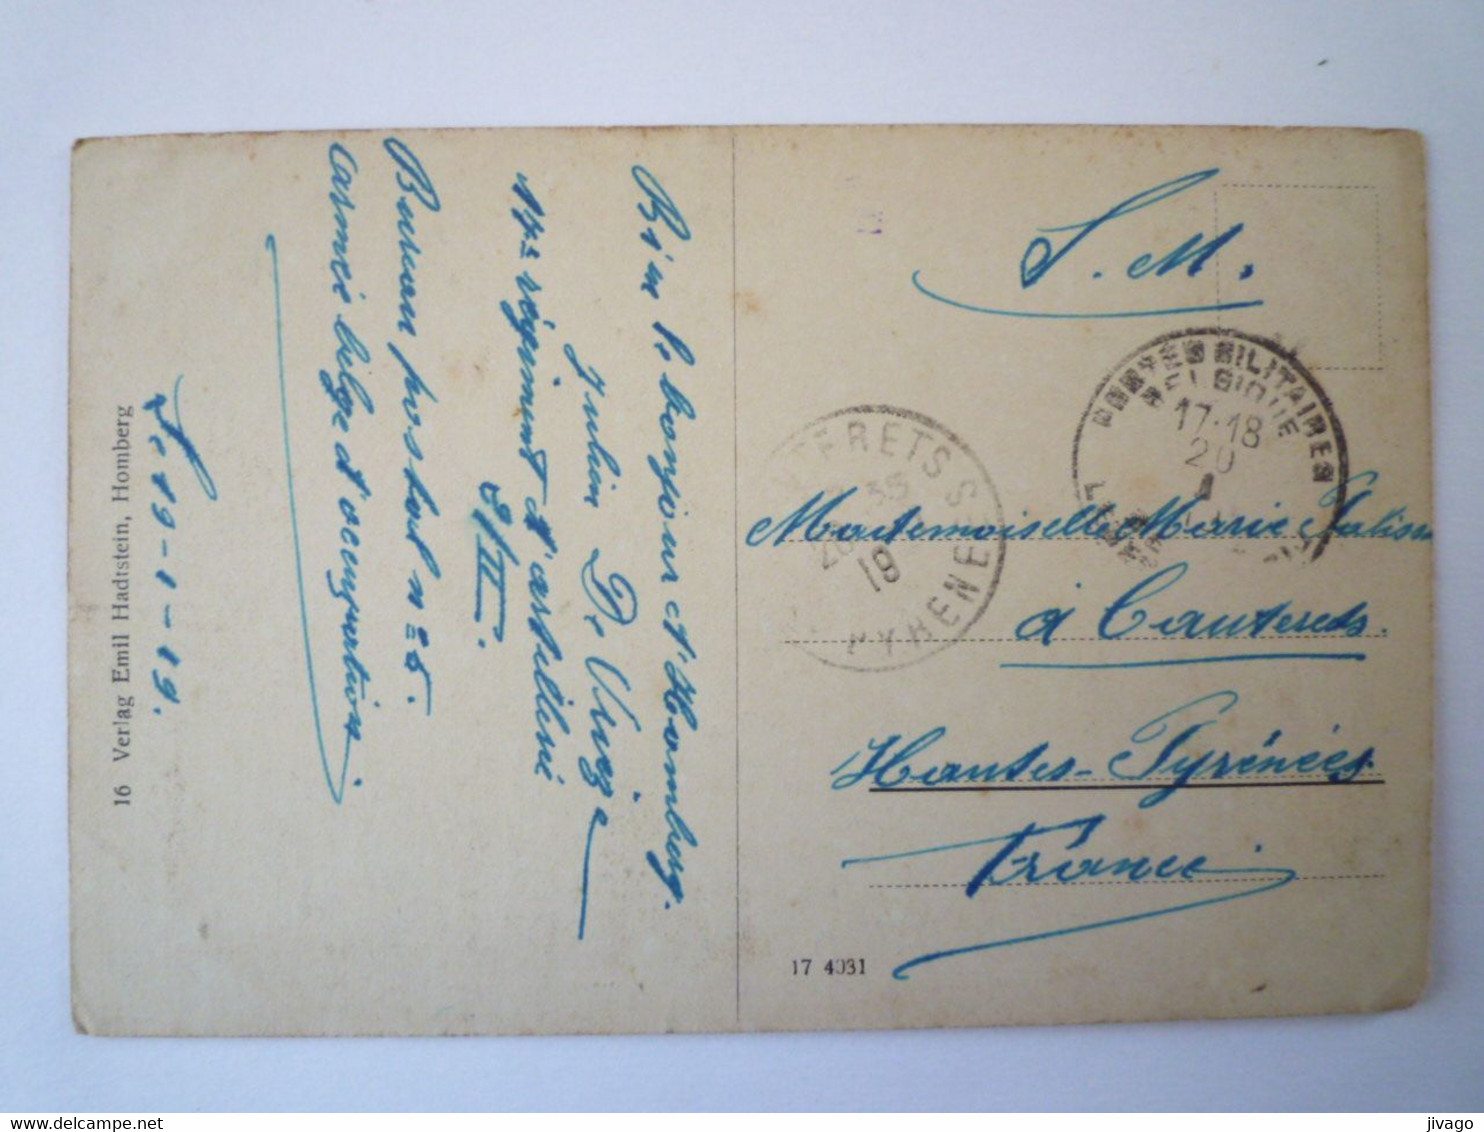 Bien le bonjour d'Homberg.
Julien De Vriege
14e régiment d'artillerie
3/II.
Bureau postal n= 25.
l'armée belge d'occupation
Le 19-1-19.
16 Verlag Emil Hadtstein, Homberg
S. M.
POSTES MILITAIRES
BELGIQUE
17-18
20
CAUTERETS
35
19
PYRENEES
Mademoiselle Marie
à Cauterets.
Hautes-Pyrénées
France
17 4031
delcampe.net
jivago